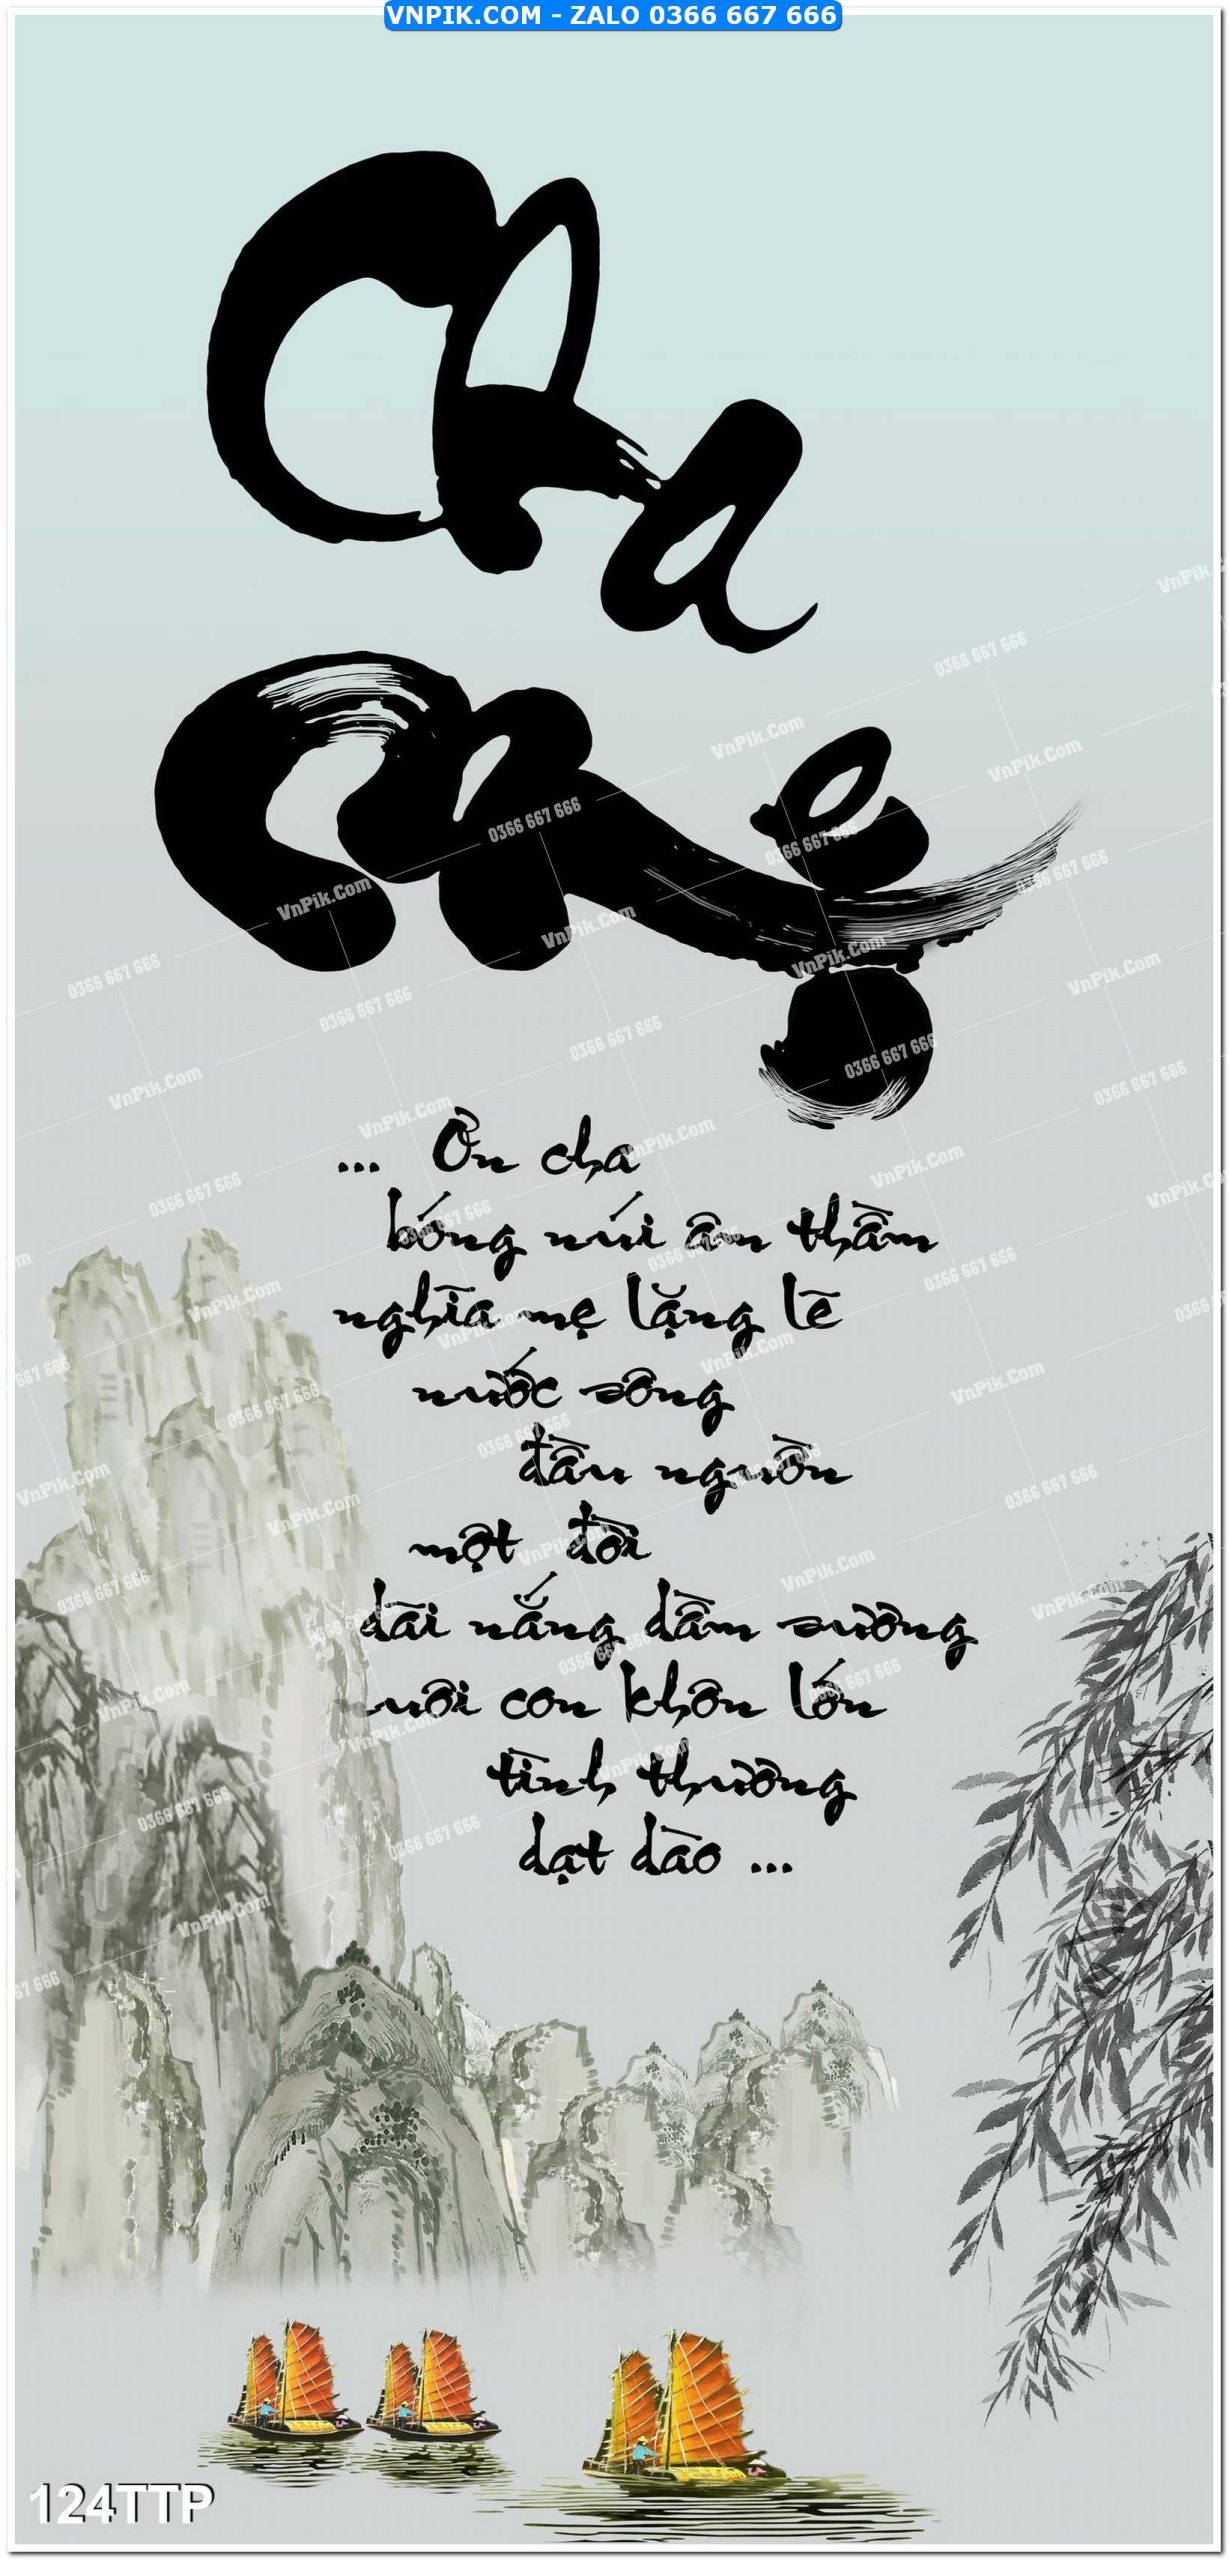 VNPIK.COM - ZALO 0366 667 666
Cha
Mẹ
... Ơn cha
bóng núi âm thầm
nghĩa mẹ lặng lẽ
nước sông
đầu nguồn
một đời
dãi nắng dầm sương
nuôi con khôn lớn
tình thương
dạt dào ...
124TTP
VnPik.Com
0366 667 666